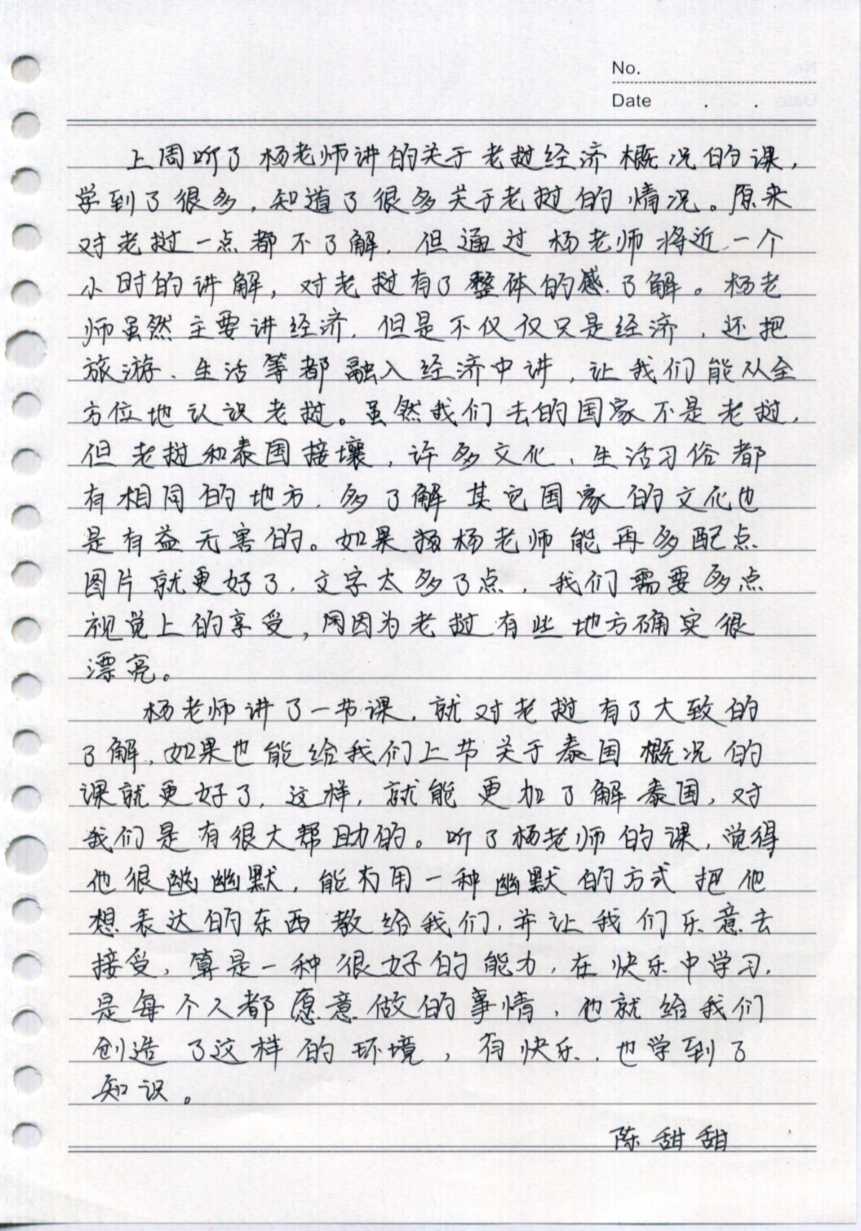 No.
Date . .
上周听了杨老师讲的关于老挝经济概况的课,
学到了很多,知道了很多关于老挝的情况。原来
对老挝一点都不了解,但通过杨老师将近一个
小时的讲解,对老挝有了整体的感.了解。杨老
师虽然主要讲经济,但是不仅仅只是经济,还把
旅游、生活等都融入经济中讲,让我们能从全
方位地认识老挝。虽然我们去的国家不是老挝,
但老挝和泰国接壤,许多文化、生活习俗都
有相同的地方,多了解其它国家的文化也
是有益无害的。如果杨老师能再多配点
图片就更好了,文字太多了点,我们需要多点
视觉上的享受,因为老挝有些地方确实很
漂亮。
杨老师讲了一节课,就对老挝有了大致的
了解,如果也能给我们上节关于泰国概况的
课就更好了,这样,就能更加了解泰国,对
我们是有很大帮助的。听了杨老师的课,觉得
他很幽幽默,能用一种幽默的方式把他
想表达的东西教给我们,并让我们乐意去
接受,算是一种很好的能力,在快乐中学习,
是每个人都愿意做的事情,他就给我们
创造了这样的环境,有快乐,也学到了
知识。
陈甜甜